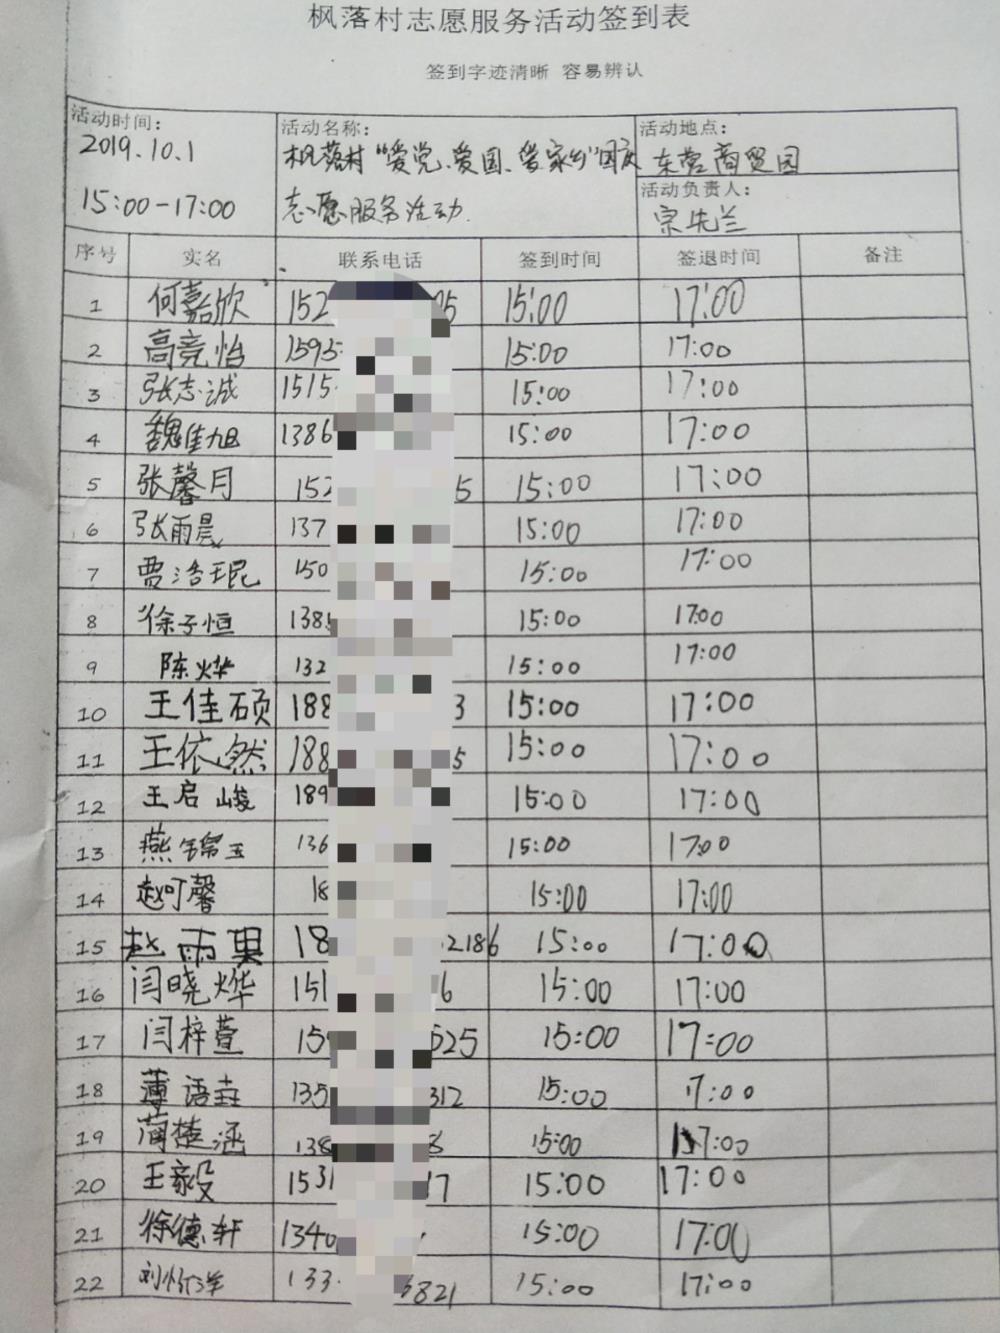 枫落村志愿服务活动签到表
签到字迹清晰 容易辨认
活动时间: 活动名称: 活动地点:
2019.10.1 枫落村"爱党、爱国、爱家乡"国庆 东营商贸园
活动负责人:
15:00-17:00 志愿服务活动. 宗先兰
序号 实名 联系电话 签到时间 签退时间 备注
1 何嘉欣 152 5 15:00 17:00
2 高竞怡 1595 15:00 17:00
3 张志诚 1515 15:00 17:00
4 魏佳旭 1386 15:00 17:00
5 张馨月 152 5 15:00 17:00
6 张雨晨 137 15:00 17:00
7 贾浩珉 150 15:00 17:00
8 徐子恒 138 15:00 17:00
9 陈烨 132 15:00 17:00
10 王佳硕 188 3 15:00 17:00
11 王依然 188 5 15:00 17:00
12 王启峻 189 15:00 17:00
13 燕锦玉 136 15:00 17:00
14 赵可馨 18 15:00 17:00
15 赵雨果 18 2186 15:00 17:00
16 闫晓烨 151 6 15:00 17:00
17 闫梓萱 15 525 15:00 17:00
18 薄语垚 135 312 15:00 17:00
19 蔺楚涵 138 15:00 17:00
20 王毅 1531 17 15:00 17:00
21 徐德轩 1340 15:00 17:00
22 刘 洋 133 6821 15:00 17:00